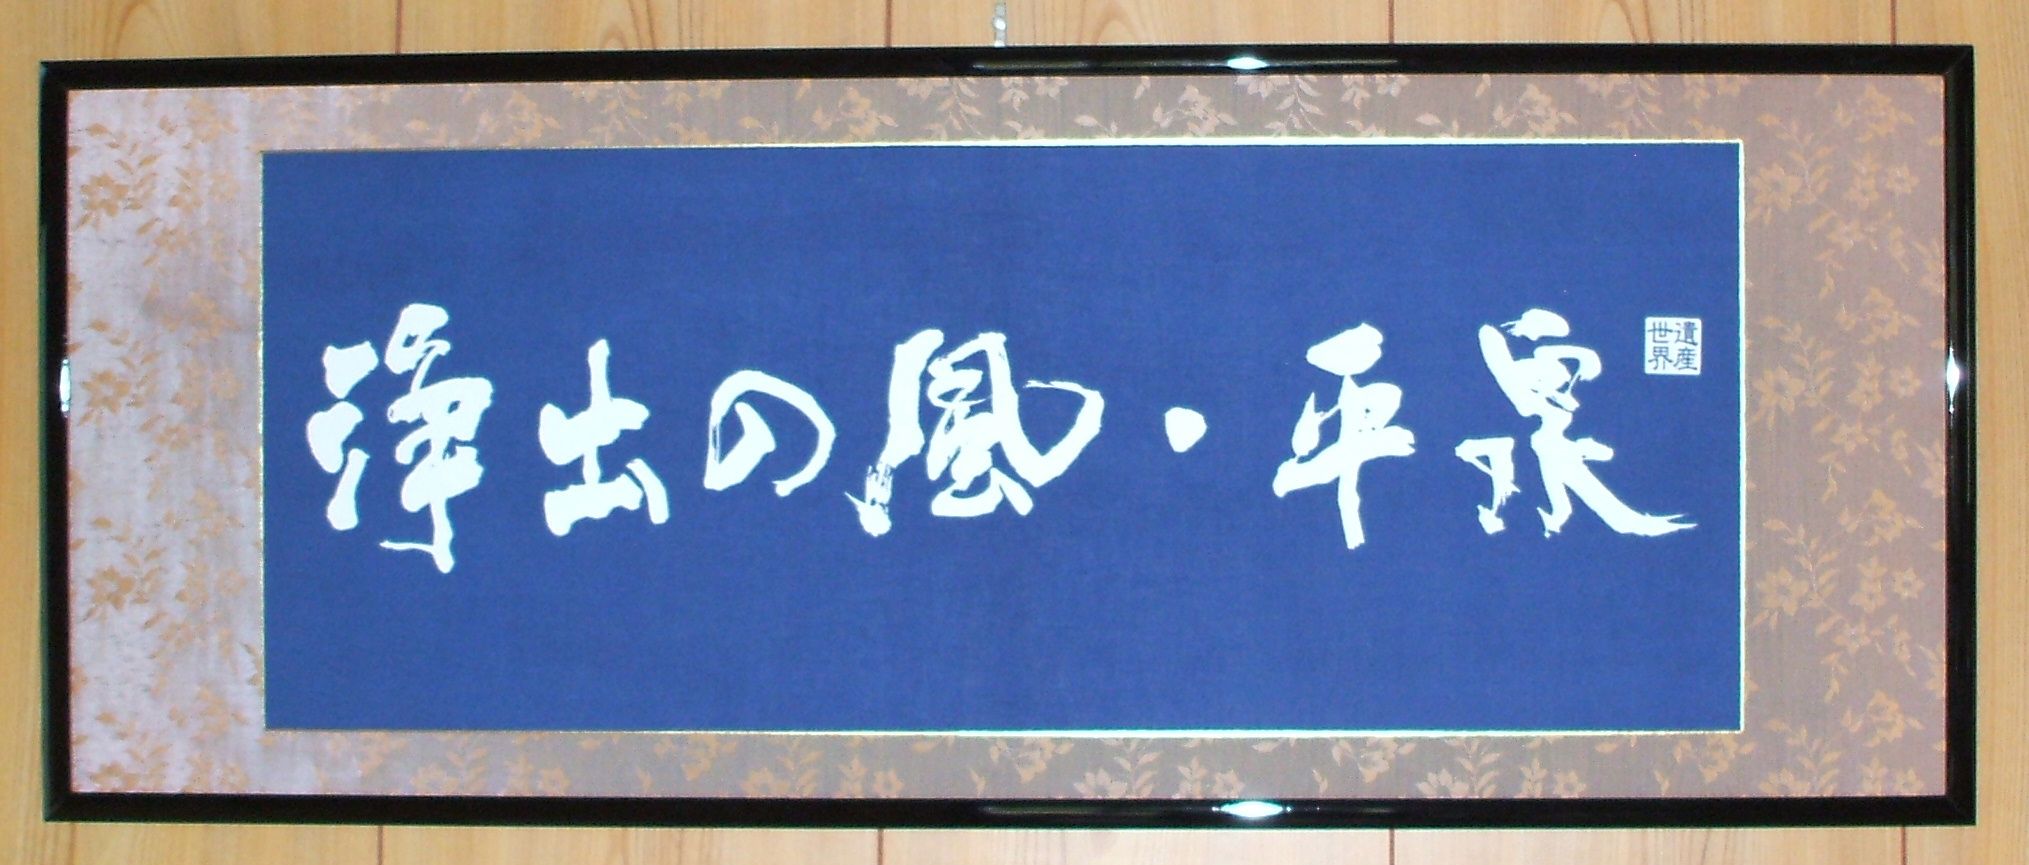 浄土の風・平泉
世界遺産